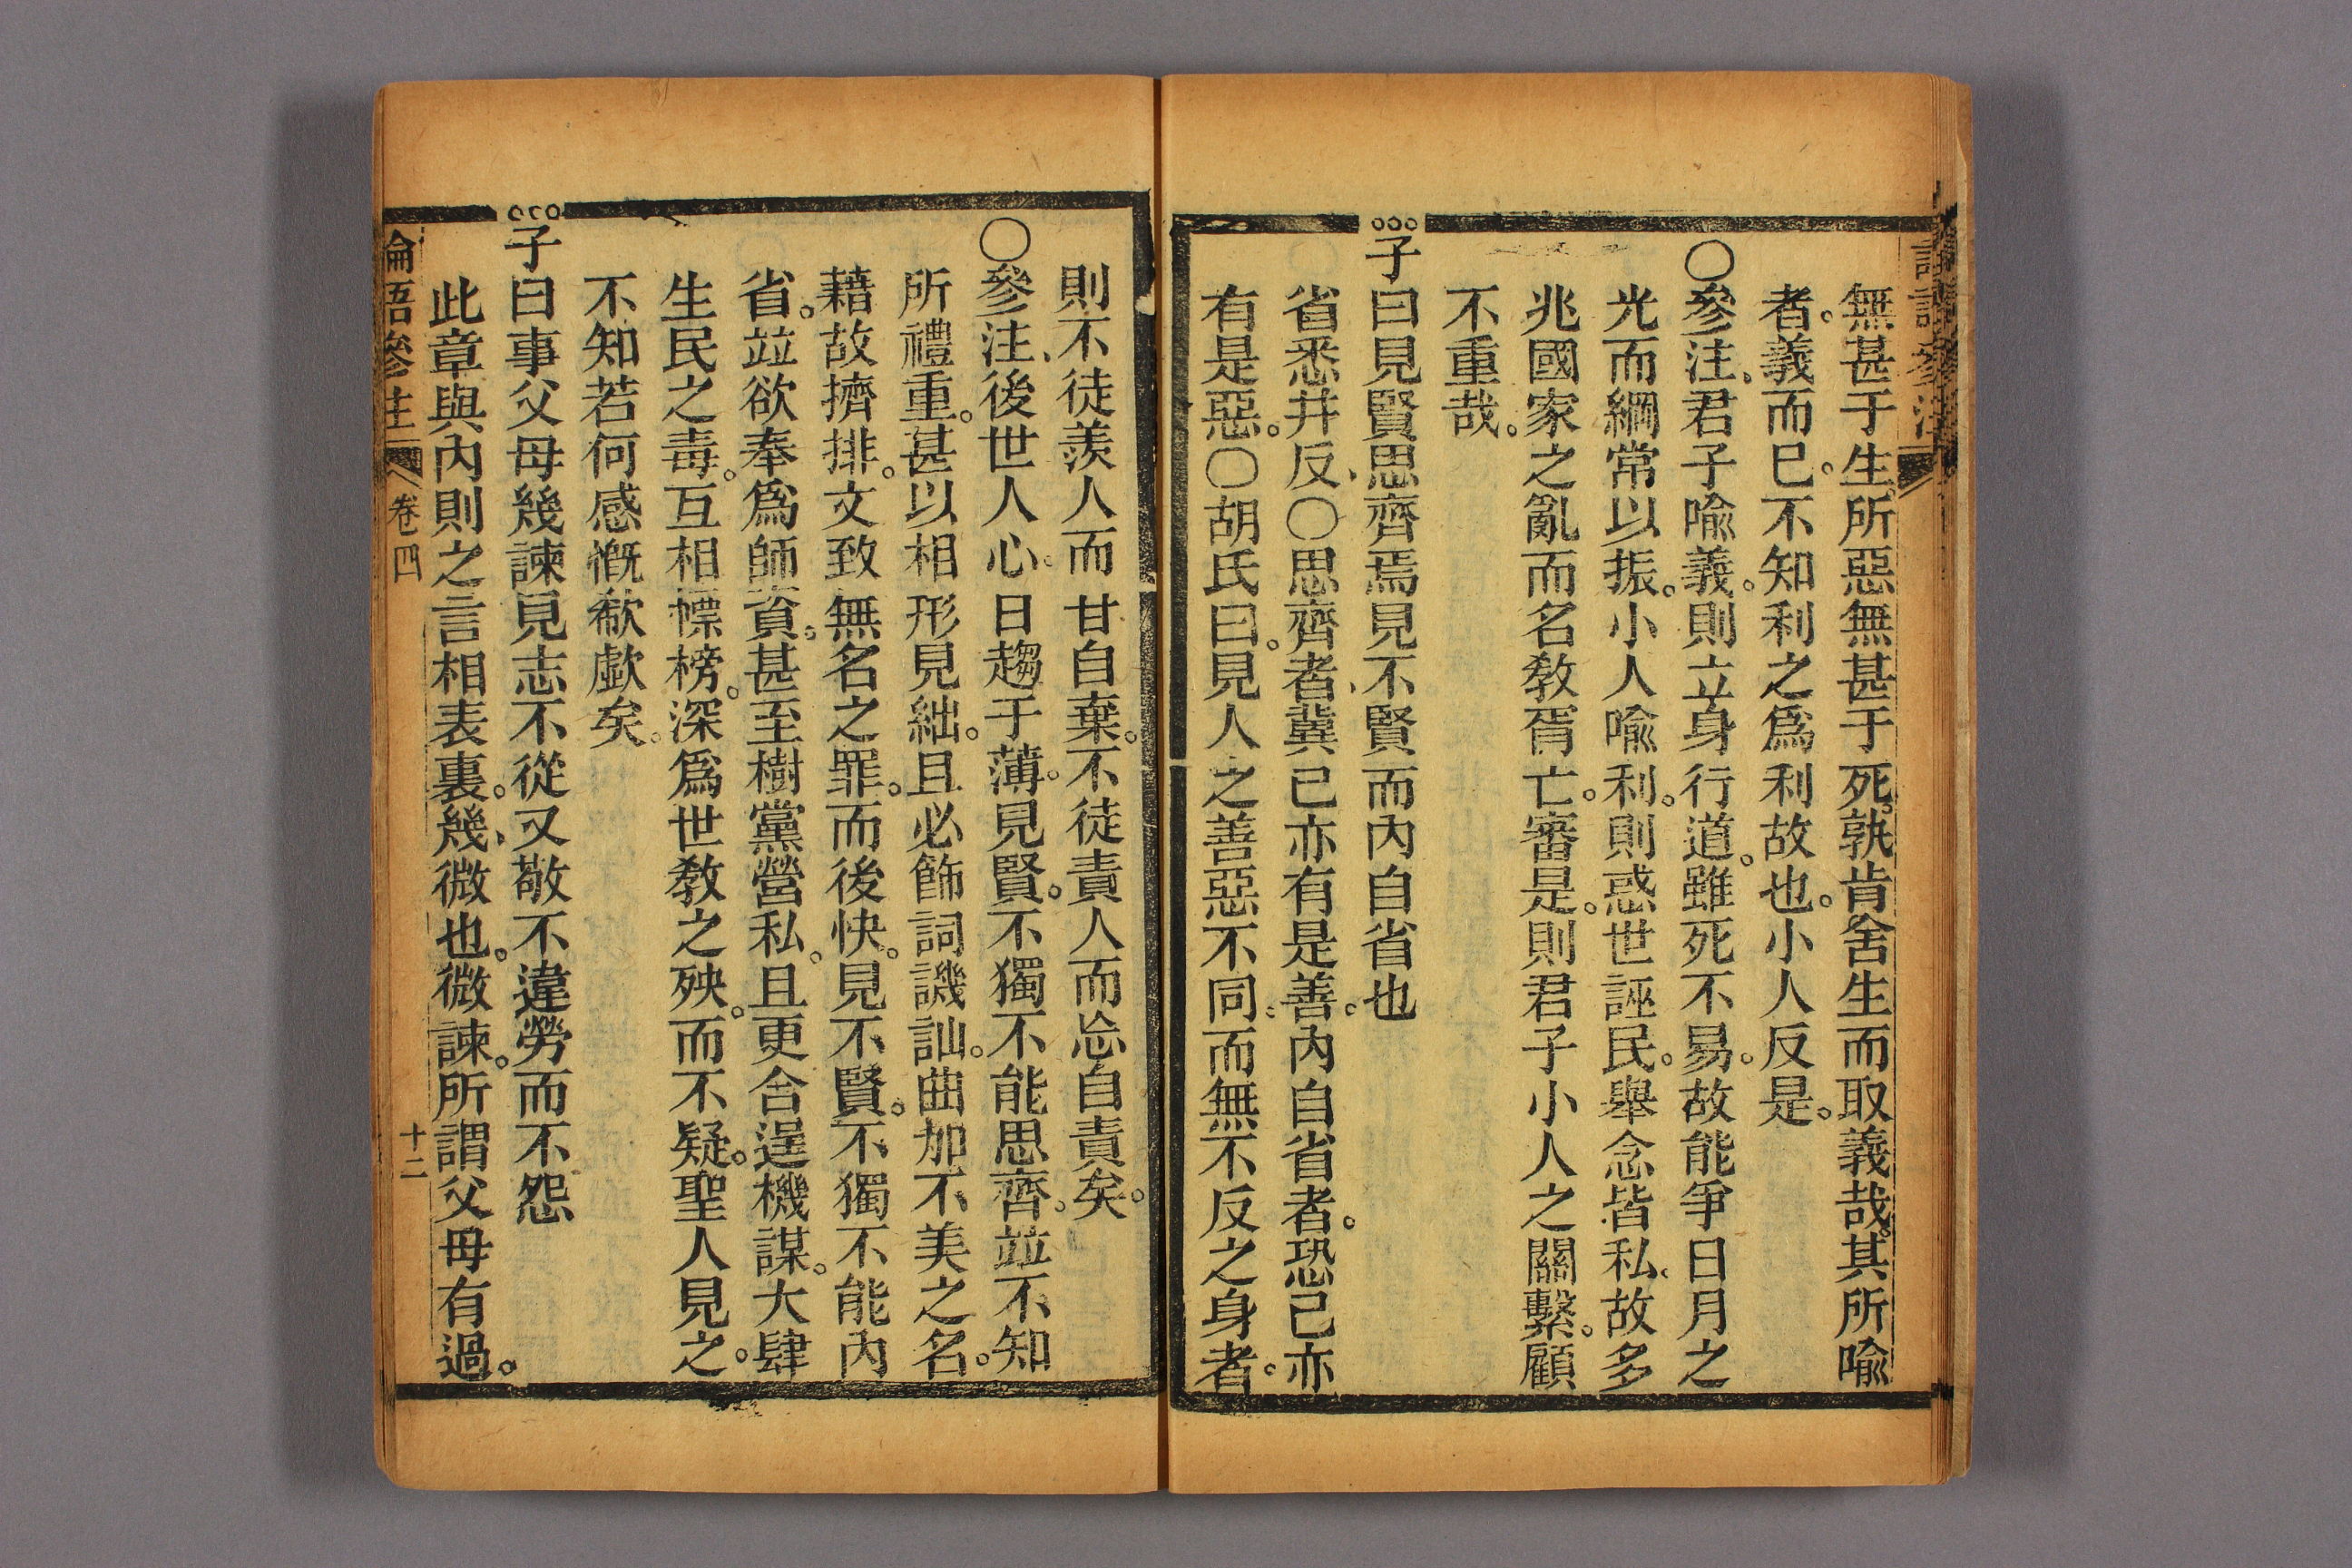 無甚于生。所惡無甚于死。孰肯舍生而取義哉。其所喩
者。義而已。不知利之爲利故也。小人反是。
○參注、君子喩義。則立身行道。雖死不易。故能爭日月之
光而綱常以振。小人喩利。則惑世誣民。舉念皆私。故多
兆國家之亂而名敎胥亡。審是。則君子小人之關繫。顧
不重哉。
子曰見賢思齊焉見不賢而內自省也
省悉井反、○思齊者、冀己亦有是善。內自省者。恐己亦
有是惡。○胡氏曰。見人之善惡不同。而無不反之身者。
則不徒羨人而甘自棄。不徒責人而忘自責矣。
○參注、後世人心。日趨于薄。見賢。不獨不能思齊。竝不知
所禮重。甚以相形見絀。且必飾詞譏訕。曲加不美之名。
藉故擠排。文致無名之罪。而後快。見不賢。不獨不能內
省。竝欲奉爲師資。甚至樹黨營私。且更合逞機謀。大肆
生民之毒。互相標榜。深爲世敎之殃。而不疑。聖人見之。
不知若何感慨欷歔矣。
子曰事父母幾諫見志不從又敬不違勞而不怨
此章與內則之言相表裏。幾、微也。微諫。所謂父母有過。
論語參注 卷四 十二